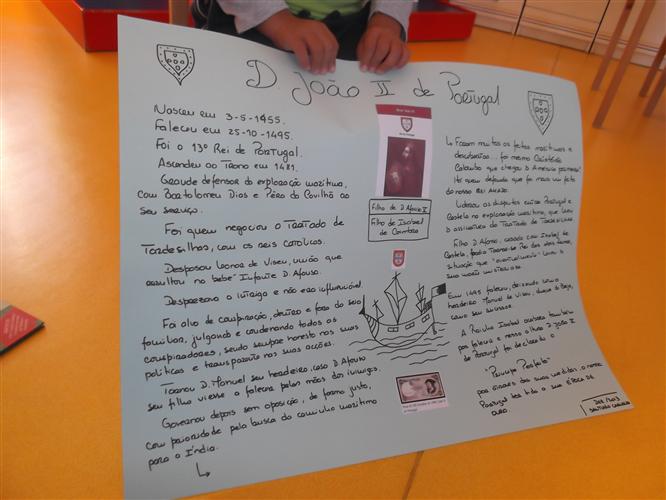 D. João II de Portugal
Nasceu em 3-5-1455.
Faleceu em 25-10-1495.
Foi o 13º Rei de Portugal.
Ascendeu ao Trono em 1481.
Grande defensor da exploração marítima,
com Bartolomeu Dias e Pêro da Covilhã ao
seu serviço.
Foi quem negociou o Tratado de
Tordesilhas, com os reis católicos.
Desposou Leonor de Viseu, união que
resultou no bebé Infante D. Afonso.
Desprezava o intriga e não era influenciável
Foi alvo de conspiração, dentro e fora do seio
familiar, julgando e condenando todos os
conspiradores, sendo sempre honesto nas suas
políticas e transparente nas suas acções.
Tornou D. Manuel seu herdeiro, caso D. Afonso
seu filho viesse a falecer pelas mãos dos inimigos.
Governou depois sem oposição, de forma justa,
com prioridade pela busca do caminho marítimo
para a Índia.
Filho de D. Afonso V
Filho de Isabel
de Coimbra
↳ Foram muitos os feitos marítimos e
descobertas... foi mesmo Cristóvão
Colombo que chegou à América primeiro?
Há quem defenda que foi mais um feito
do nosso Rei
Liderou as disputas entre Portugal e
Castela na exploração marítima, que levou
à assinatura do Tratado de Tordesilhas
Filho D. Afonso, casado com Isabel de
Castela, podia tornar-se Rei dos dois reinos,
situação que "eventualmente" levou à
sua morte misteriosa.
Em 1495 faleceu, deixando como
herdeiro Manuel de Viseu, duque de Beja,
como seu sucessor.
A Rainha Isabel
por falecer e nosso D. João II
de Portugal foi declarado o
"Príncipe Perfeito"
por causa das suas medidas, o nome
Portugal teve tido a sua época de
ouro.
2013
Santiago